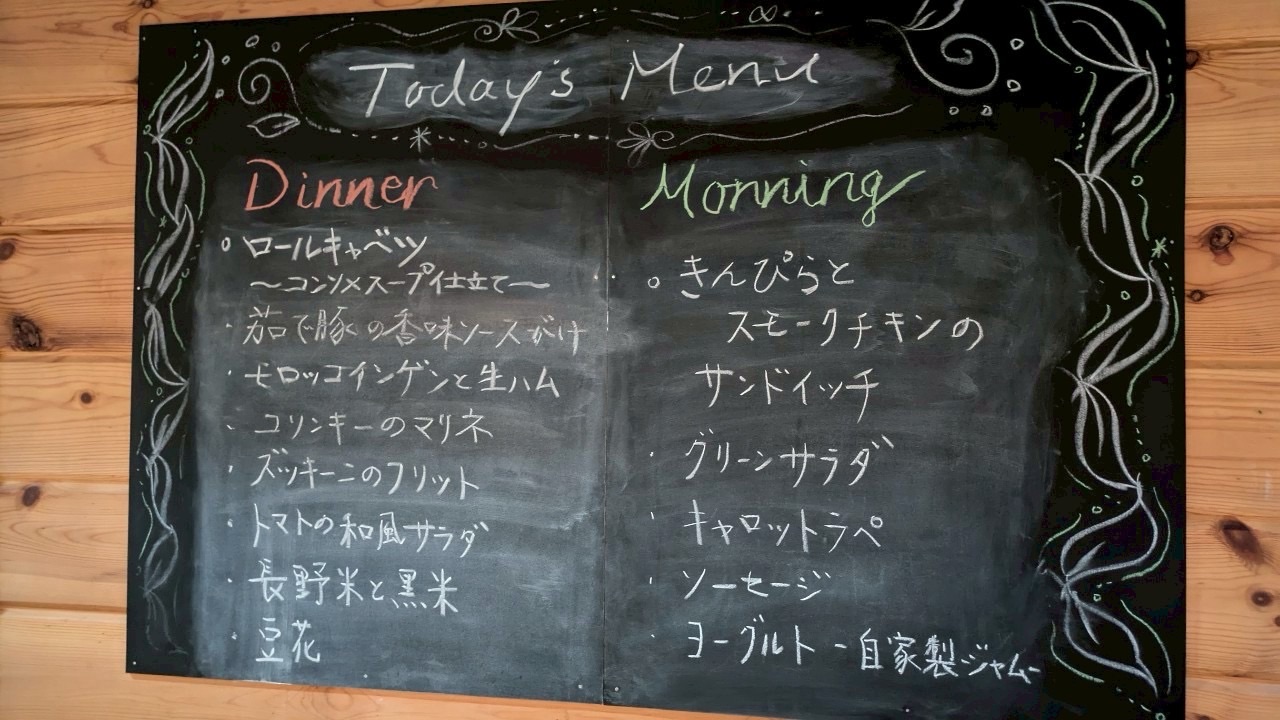 Today's Menu
Dinner
ロールキャベツ
〜コンソメスープ仕立て〜
・茹で豚の香味ソースがけ
・モロッコインゲンと生ハム
・コリンキーのマリネ
・ズッキーニのフリット
・トマトの和風サラダ
・長野米と黒米
・豆花
Monning
きんぴらと
スモークチキンの
サンドイッチ
・グリーンサラダ
・キャロットラペ
・ソーセージ
・ヨーグルト -自家製ジャム-